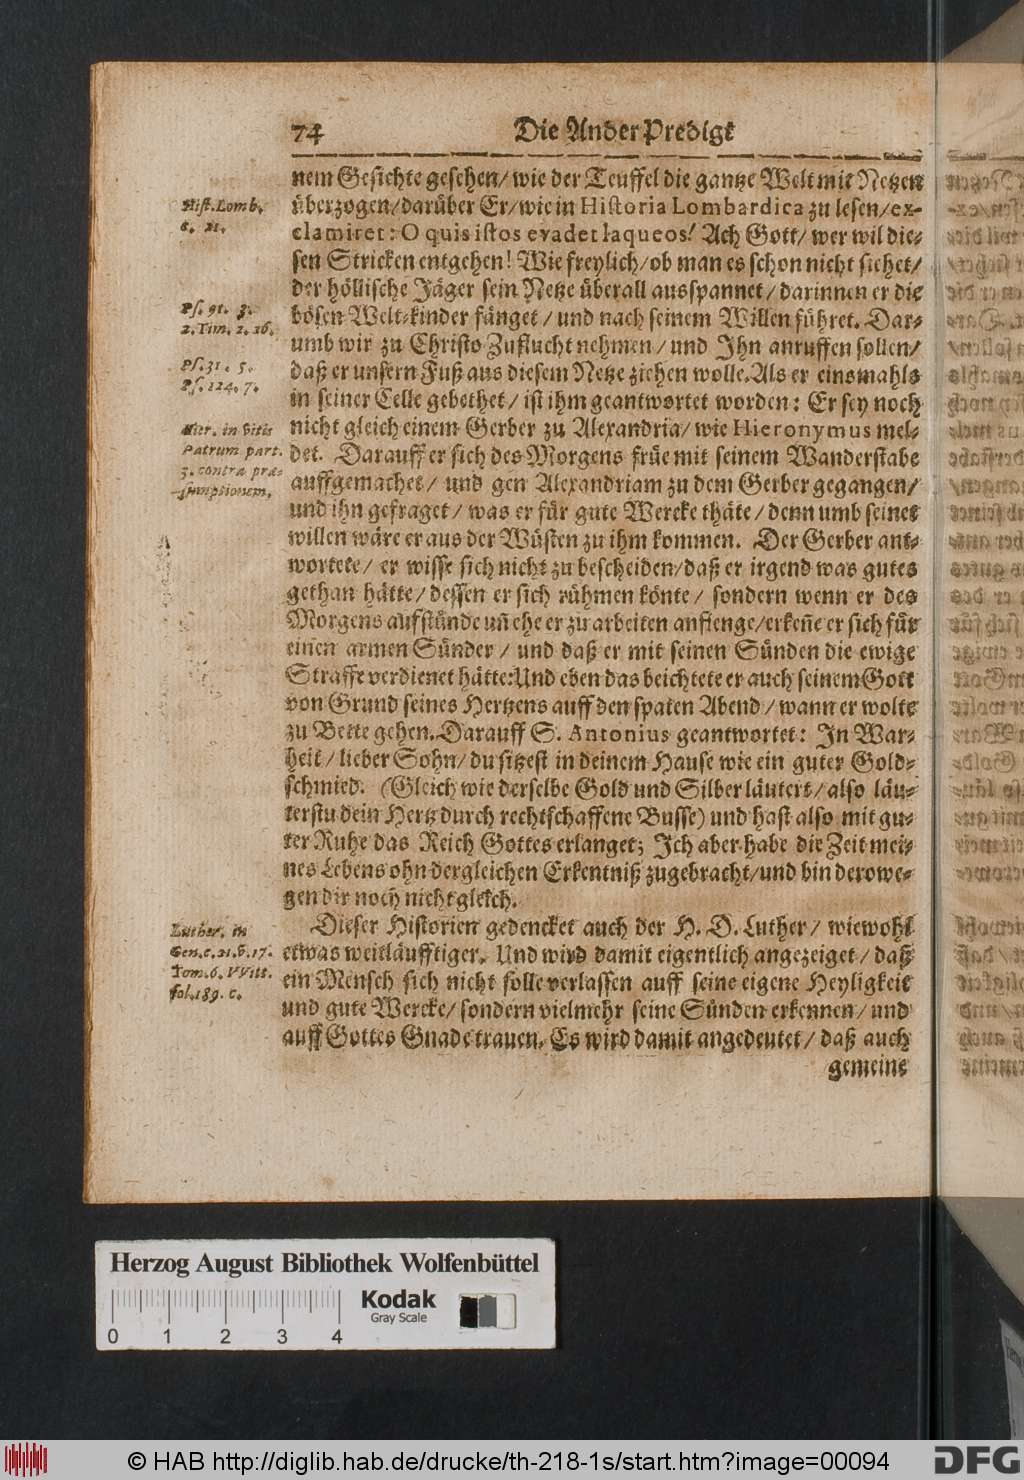 74 Die Ander Predigt
nem Gesichte gesehen/ wie der Teuffel die gantze Welt mit Netzen
Hist. Lomb.
c. 21.
überzogen/darüber Er/wie in Historia Lombardica zu lesen/ex-
clamiret: O quis istos evadet laqueos! Ach Gott/ wer wil die-
sen Stricken entgehen! Wie freylich/ob man es schon nicht siehet/
der höllische Jäger sein Netze überall ausspannet/ darinnen er die
Ps. 91. 3.
2. Tim. 2. 26.
bösen Welt-kinder fänget / und nach seinem Willen führet. Dar-
umb wir zu Christo Zuflucht nehmen/ und Ihn anruffen sollen/
Ps. 31. 5.
Ps. 124. 7.
daß er unsern Fuß aus diesem Netze ziehen wolle. Als er einsmahls
in seiner Celle gebethet/ ist ihm geantwortet worden: Er sey noch
in Vitis
Patrum part.
3. contra præ-
sumptionem.
nicht gleich einem Gerber zu Alexandria/ wie Hieronymus mel-
det. Darauff er sich des Morgens früe mit seinem Wanderstabe
auffgemachet/ und gen Alexandriam zu dem Gerber gegangen/
und ihn gefraget/ was er für gute Wercke thäte/ denn umb seinet
willen wäre er aus der Wüsten zu ihm kommen. Der Gerber ant-
wortete/ er wisse sich nicht zu bescheiden/daß er irgend was gutes
gethan hätte/ dessen er sich rühmen könte/ sondern wenn er des
Morgens aufstünde uñ ehe er zu arbeiten anfienge/erkeñe er sich für
einen armen Sünder/ und daß er mit seinen Sünden die ewige
Straffe verdienet hätte: Und eben das beichtete er auch seinem Gott
von Grund seines Hertzens auff den spaten Abend/ wann er wolte
zu Bette gehen. Darauff S. Antonius geantwortet: In War-
heit/ lieber Sohn/ du sitzest in deinem Hause wie ein guter Gold-
schmied. (Gleich wie derselbe Gold und Silber läutert/ also läu-
terstu dein Hertz durch rechtschaffene Busse) und hast also mit gu-
ter Ruhe das Reich Gottes erlanget; Ich aber habe die Zeit mei-
nes Lebens ohn dergleichen Erkentniß zugebracht/und bin derowe-
gen dir noch nicht gleich.
Luther. in
Gen. c. 21. §. 17.
Tom. 6. VVitt.
fol. 189. c.
Dieser Historien gedencket auch der H. D. Luther/ wiewohl
etwas weitläufftiger. Und wird damit eigentlich angezeiget/ daß
ein Mensch sich nicht solle verlassen auff seine eigene Heyligkeit
und gute Wercke/ sondern vielmehr seine Sünden erkennen/ und
auff Gottes Gnade trauen. Es wird damit angedeutet/ daß auch
gemeine
Herzog August Bibliothek Wolfenbüttel
Kodak
Gray Scale
0 1 2 3 4
© HAB http://diglib.hab.de/drucke/th-218-1s/start.htm?image=00094
DFG